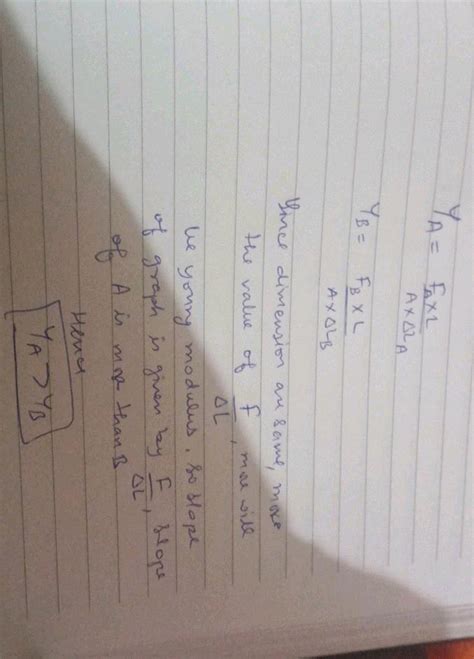 Y_A = F_A × L / A × ΔL_A
Y_B = F_B × L / A × ΔL_B
Since dimension are same, more
the value of F/ΔL, more will
be young modulus. So slope
of graph is given by F/ΔL, slope
of A is more than B
Hence
Y_A > Y_B